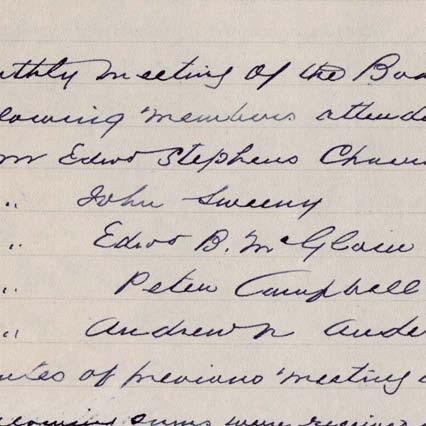 nthly meeting of the Boa
lowing members attend
Mr Edwd Stephens Chair
" John Sweeny
" Edwd B. McGloin
" Peter Campbell
" Andrew Ande
utes of previous meeting
sums were received